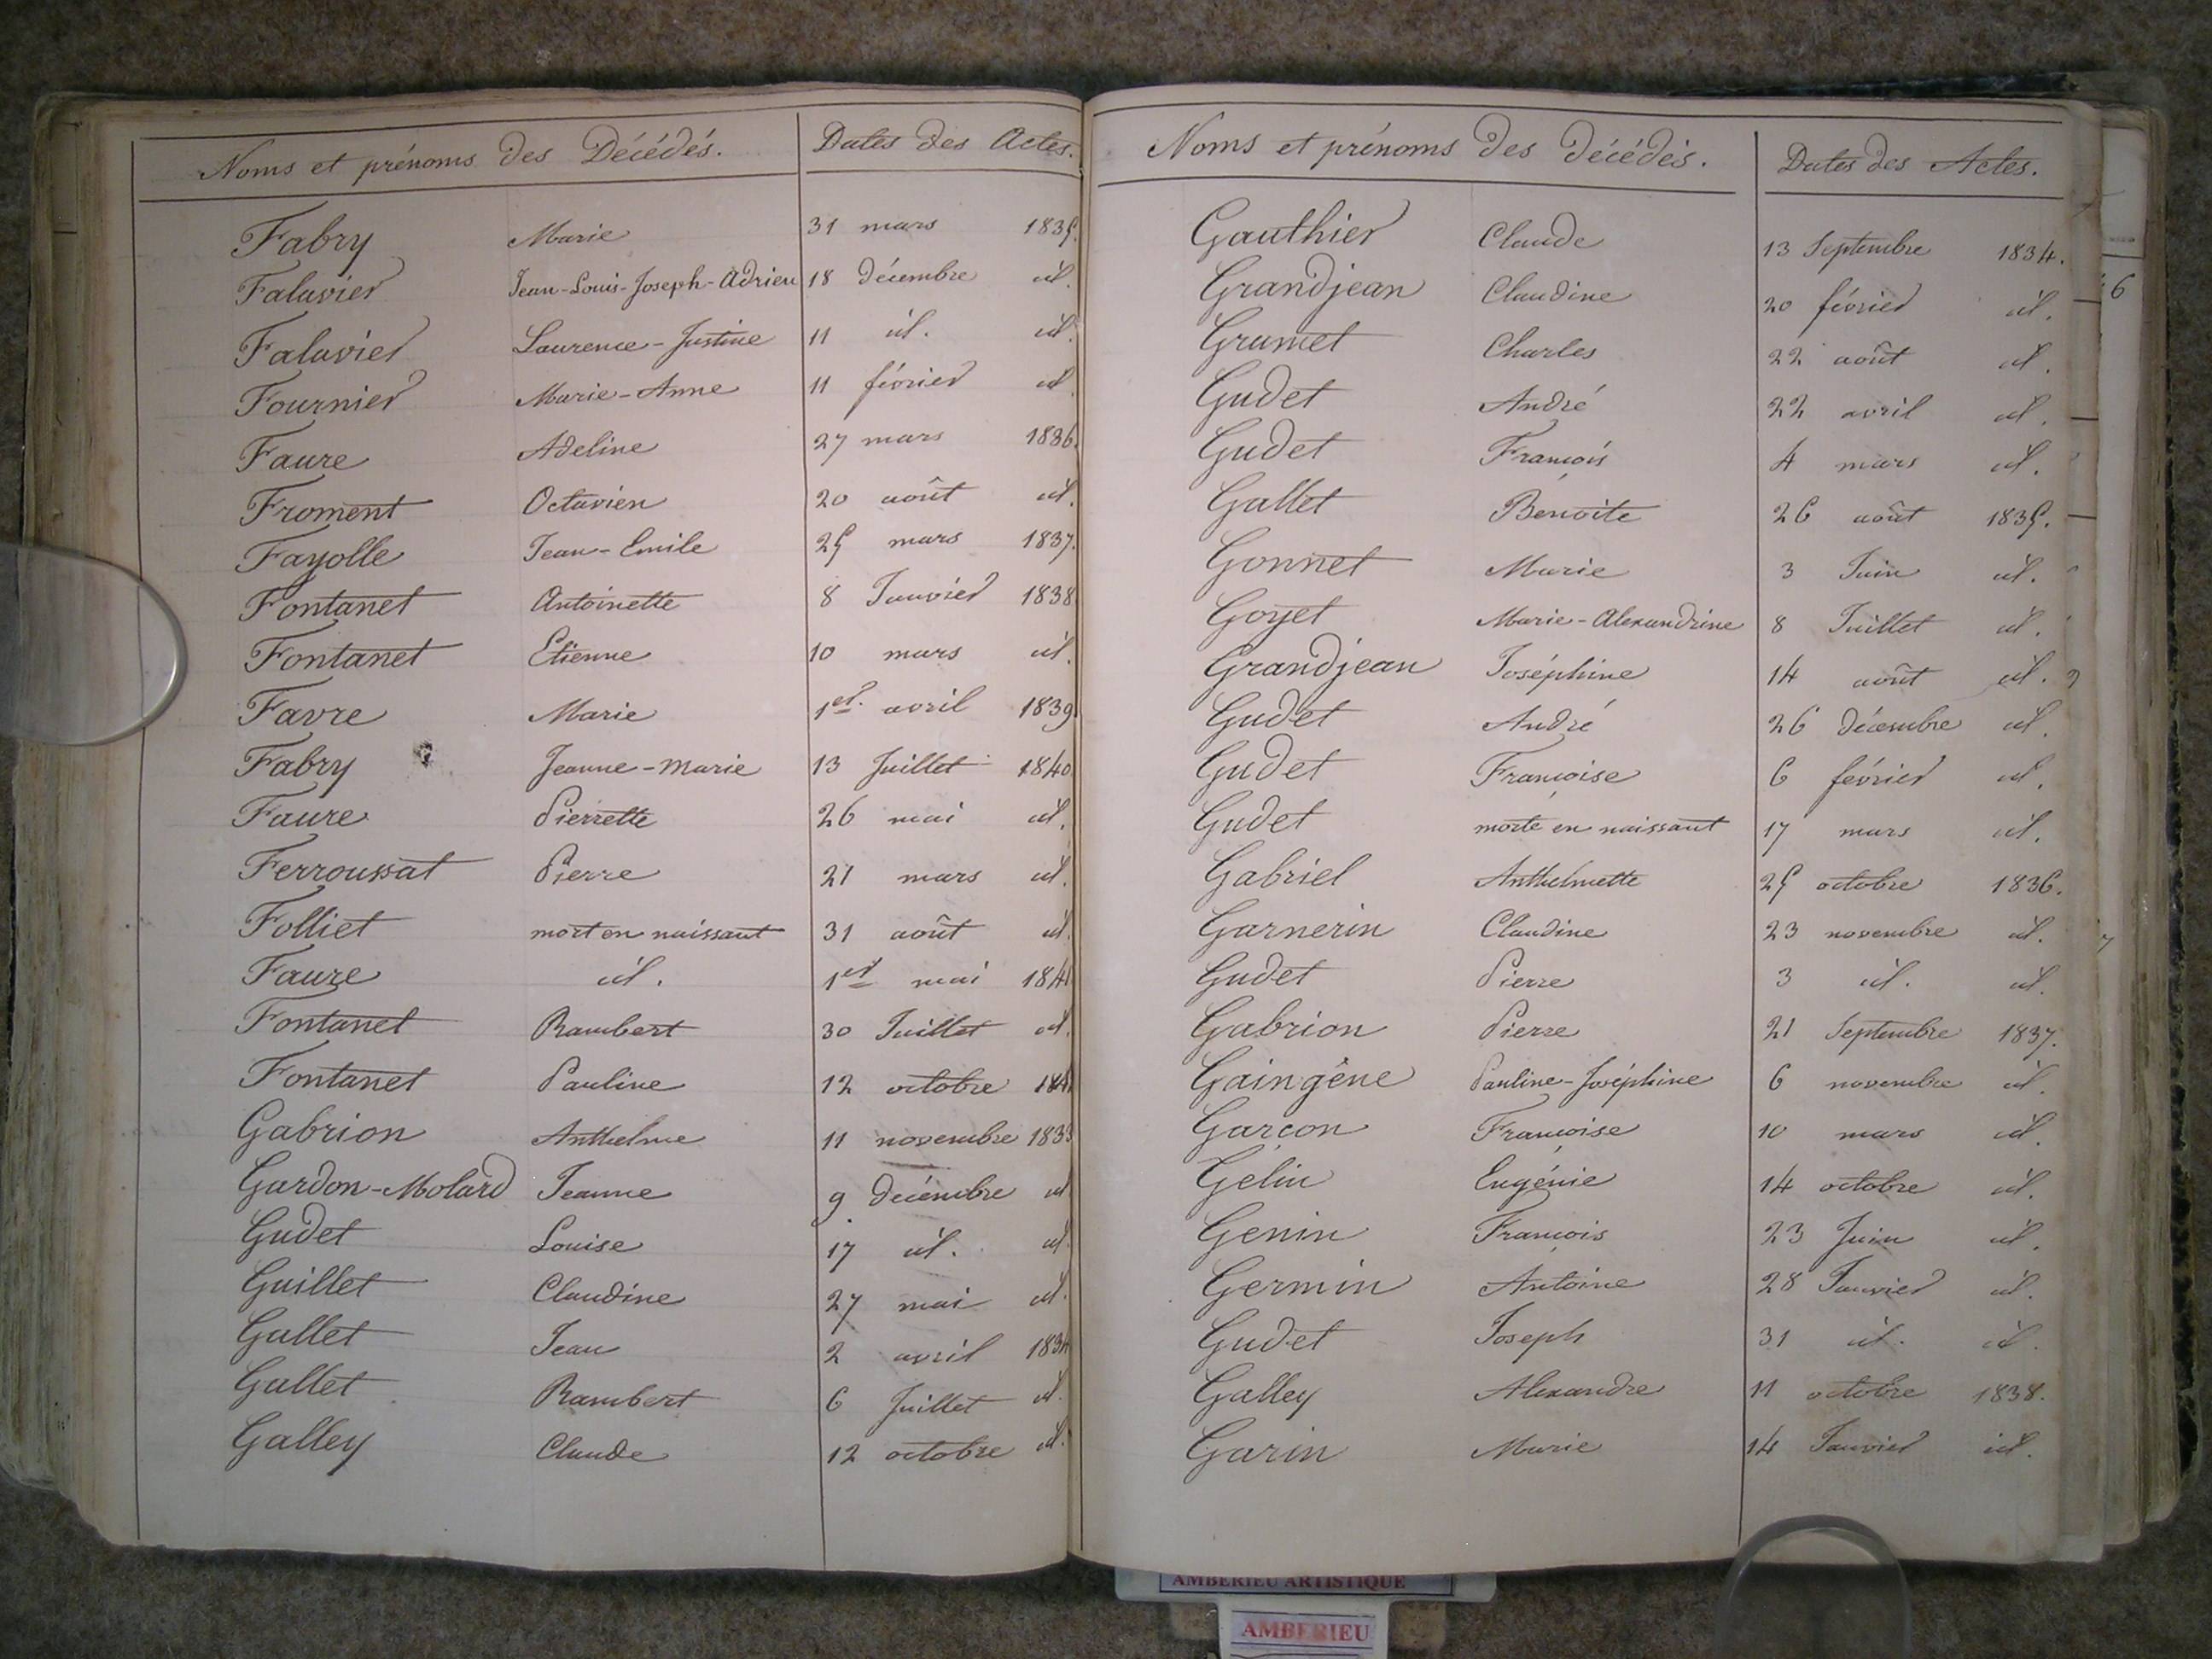 Noms et prénoms des Décédés. Dates des Actes.
Fabry Marie 31 mars 1835.
Falavier Jean-Louis-Joseph-Adrien 18 décembre id.
Falavier Laurence-Justine 11 id. id.
Fournier Marie-Anne 11 février id
Faure Adeline 27 mars 1836.
Froment Octavien 20 août id.
Fayolle Jean-Emile 25 mars 1837.
Fontanet Antoinette 8 Janvier 1838
Fontanet Etienne 10 mars id.
Favre Marie 1er. avril 1839
Fabry Jeanne-Marie 13 Juillet 1840
Faure Pierrette 26 mai id.
Ferroussat Pierre 21 mars id.
Folliet mort en naissant 31 août id.
Faure id. 1er mai 1841
Fontanet Rambert 30 Juillet id.
Fontanet Pauline 12 octobre
Gabrion Anthelme 11 novembre 1833
Gardon-Molard Jeanne 9 décembre id
Gudet Louise 17 id. id.
Guillet Claudine 27 mai id.
Gallet Jean 2 avril 1834
Gallet Rambert 6 Juillet id.
Galley Claude 12 octobre id.
Noms et prénoms des décédés. Dates des Actes.
Gauthier Claude 13 Septembre 1834.
Grandjean Claudine 20 février id.
Grumet Charles 22 août id.
Gudet André 22 avril id.
Gudet François 4 mars id.
Gallet Benoite 26 août 1835.
Gonnet Marie 3 Juin id.
Goyet Marie-Alexandrine 8 Juillet id.
Grandjean Joséphine 14 août id.
Gudet André 26 décembre id.
Gudet Françoise 6 février id.
Gudet morte en naissant 17 mars id.
Gabriel Anthelmette 25 octobre 1836.
Garnerin Claudine 23 novembre id.
Gudet Pierre 3 id. id.
Gabrion Pierre 21 Septembre 1837.
Gaingêne Pauline-Joséphine 6 novembre id.
Garçon Françoise 10 mars id.
Gélin Eugénie 14 octobre id.
Genin François 23 Juin id.
Germin Antoine 28 Janvier id.
Gudet Joseph 31 id. id.
Galley Alexandre 11 octobre 1838.
Garin Marie 14 Janvier id.
6
AMBERIEU ARTISTIQUE
AMBERIEU